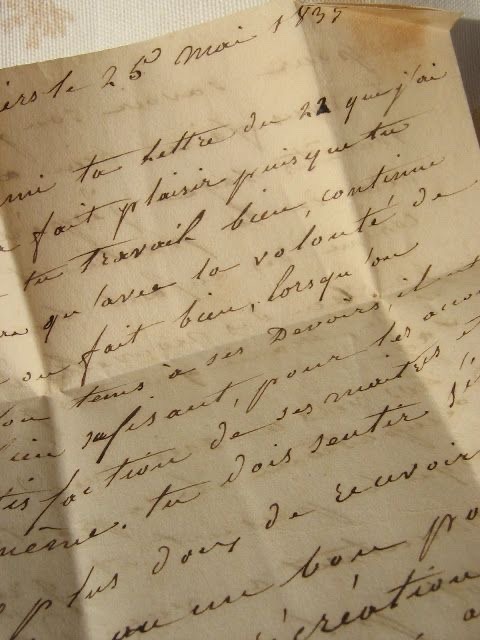 iers le 25 mai 1837
mi ta lettre du 22 que j'ai
fait plaisir puisque tu
tu travail bien, continue
qu'avec la volonté de
on fait bien, lorsqu'on
tems à ses Devoirs il
sufisant, pour les
tisfaction de ses maitres
même. tu dois sentir
plus doux de recevoir
ou un bon
récréation